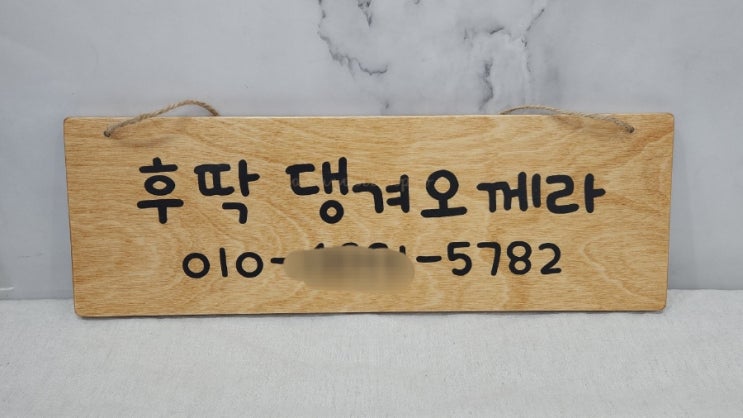 후딱 댕겨오께라
010- -5782